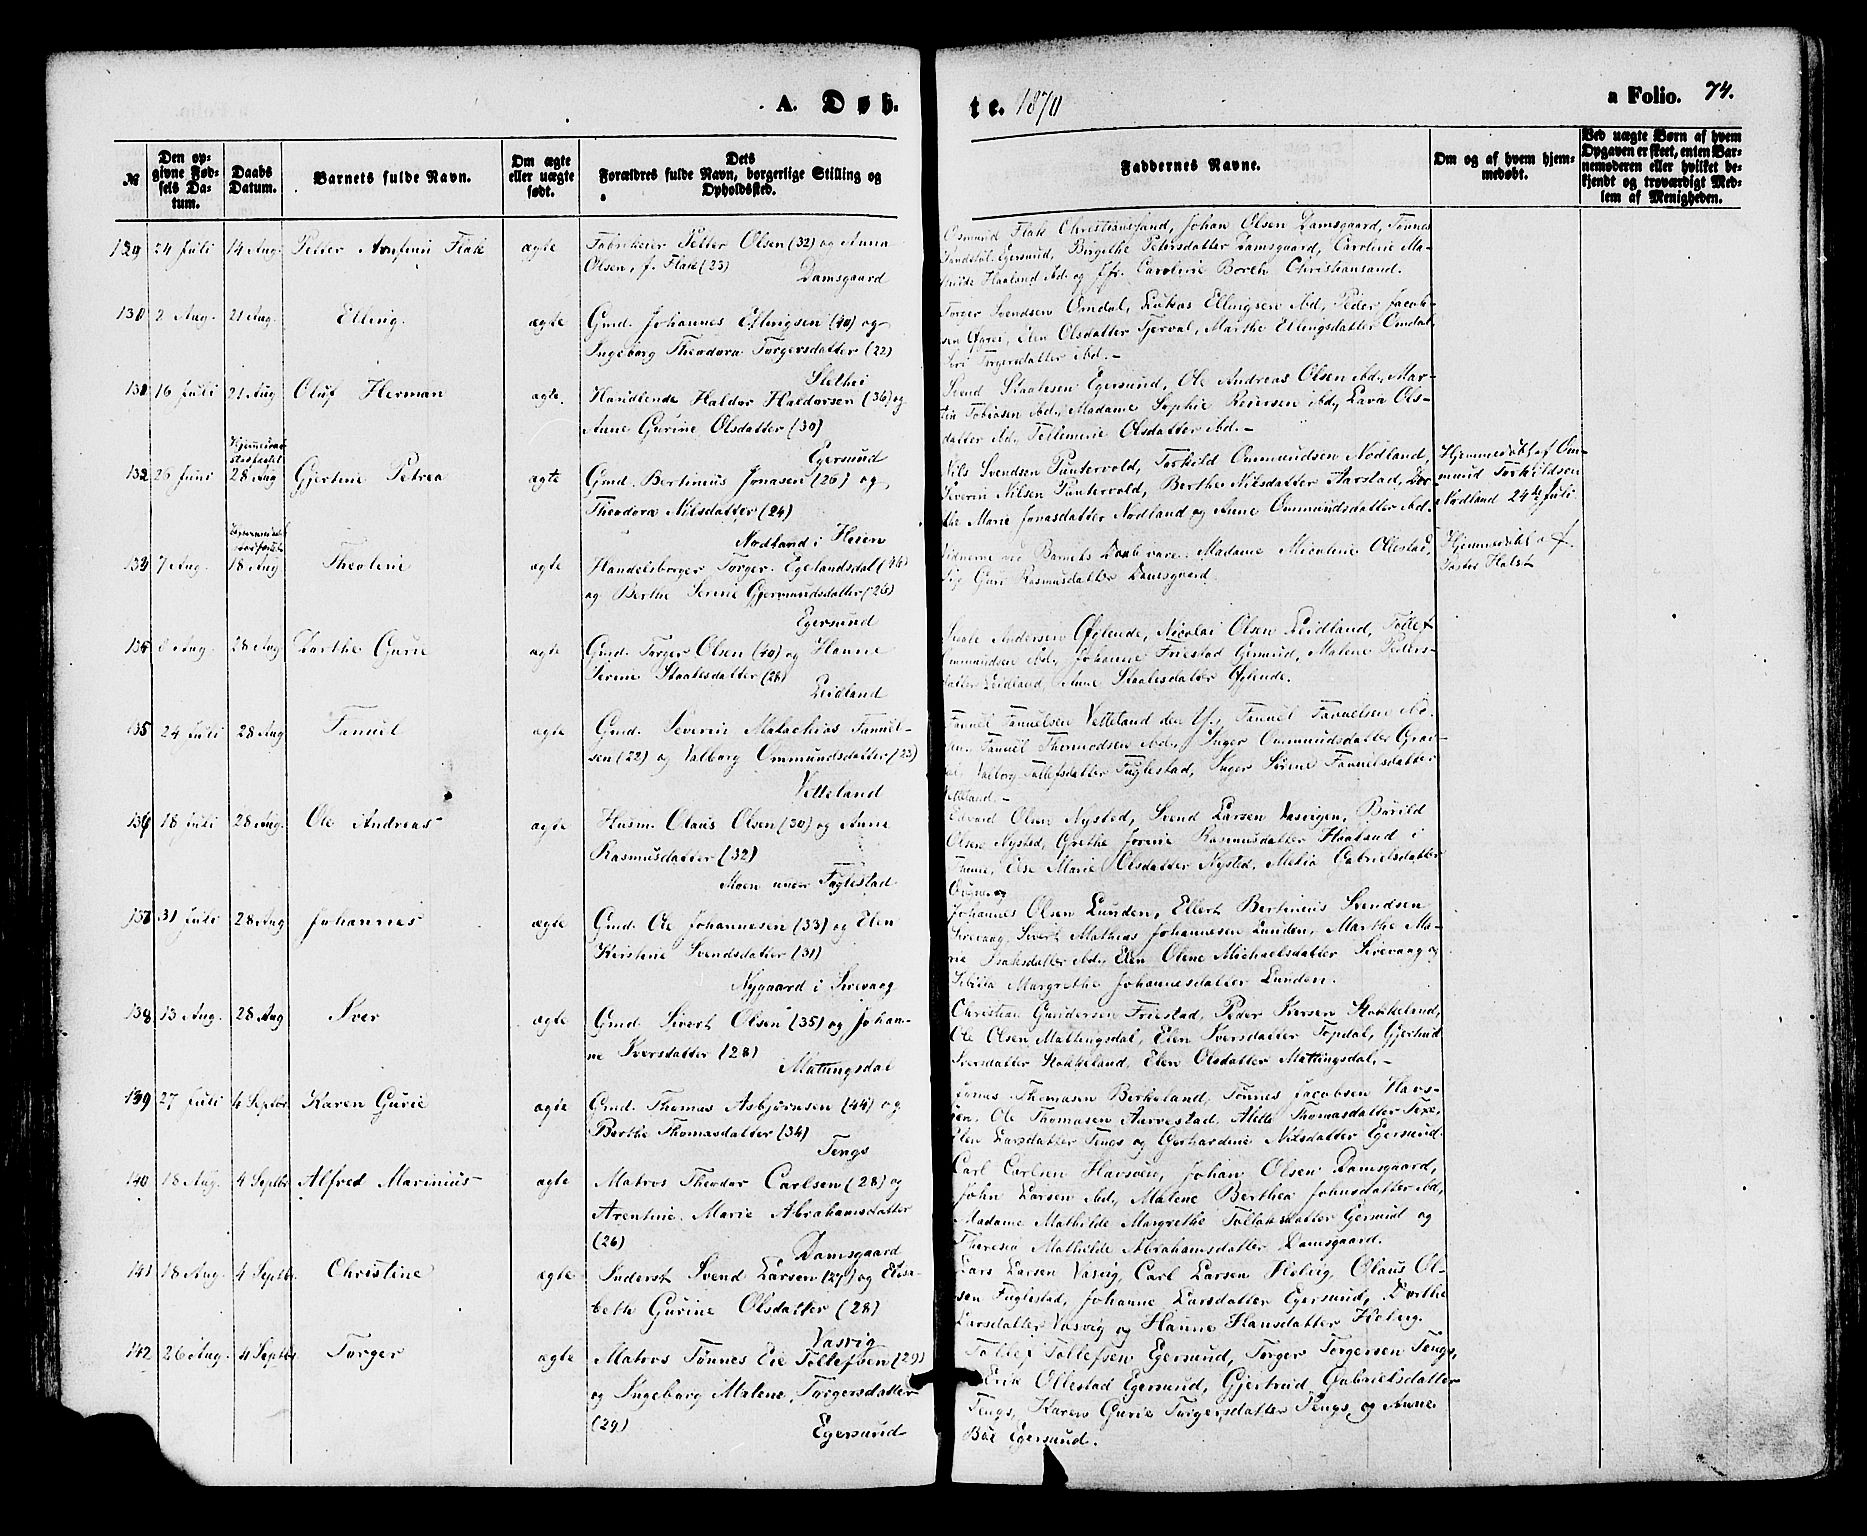 A. Døb. te. 1870 a Folio. 74.
No
Den op-
givne Fød-
sels Da-
tum.
Daabs
Datum.
Barnets fulde Navn.
Om ægte
eller uægte
født.
Dets
Forældres fulde Navn, borgerlige Stilling og
Opholdssted.
Faddernes Navne.
Om og af hvem hjem-
medøbt.
Ved uægte Børn af hvem
Opgaven er skeet, enten Bar-
nemoderen eller hvilket be-
kjendt og troværdigt Med-
lem af Menigheden.
129 24 Juli 14 Aug. Petter Arnfinn Flak ægte
Fabrikeier Petter Olsen (32) og Anna
Olsen, f. Flak (23)
Damsgaard
Osmund Flak Christiansand, Johan Olsen Damsgaard, Tønnes
Egersund, Birgethe Petersdatter Damsgaard, Caroline Ma-
Haaland ibd. og Caroline Boreh Christiansand.
130 2 Aug. 21 Aug. Elling. ægte
Gmd. Johannes Ellingsen (40) og
Ingeborg Theodora Torgersdatter (22)
Slethei
Torger Svendsen Omdal, Lukas Ellingsen ibd, Peder Jacob-
sen Elen Olsdatter Tjervol, Marthe Ellingsdatter Omdal,
Torgersdatter ibd. -
131 16 Juli 21 Aug Oluf Herman ægte.
Handlende Haldor Haldorsen (36) og
Anne Gurine Olsdatter (30)
Egersund
Svend Staalesen Egersund, Ole Andreas Olsen ibd, Mar-
tin Tobiasen ibd, Madame Sophie ibd, Lava Ols-
datter ibd, Olsdatter ibd. -
132 26 Juni 28 Aug Gjertine Petrea ægte
Gmd. Bertinius Jonasen (26) og
Theodora Nilsdatter (24)
Nodland i Heien
Nils Svendsen Puntervold, Torkild Ommundsen Nodland,
Severin Nilsen Puntervold, Berthe Nilsdatter Aarstad, Dor-
the Marie Jonasdatter Nodland og Anne Ommundsdatter ibd.
Hjemmedøbt af Om-
mund Torkildsen
Nodland 24de Juli
133 7 Aug. 18 Aug Theoline ægte
Handelsborger Torger Egelandsdal (26)
og Berthe Serine Gjermundsdatter (26)
Egersund
Vidnerne ved Barnets Daab vare. Madame Nicoline Ollestad,
Guri Rasmusdatter Damsgaard.
Hjemmedøbt af
Pastor Holst
134 8 Aug. 28 Aug Barthe Gurie ægte
Gmd. Torger Olsen (40) og Hanne
Serine Staalesdatter (28)
Leidland
Staale Andersen Øglende, Nicolai Olsen Leidland, Tollef
Ommundsen ibd, Johanne Friestad Gersund, Malene Peders-
datter Leidland, Anne Staalesdatter Øglende.
135 24 Juli 28 Aug Tanuel ægte
Gmd. Severin Malachias Fanuel-
sen (22) og Valborg Ommundsdatter (23)
Vetteland
Fanuel Fanuelsen Vetteland den Y., Fanuel Fanuelsen
Fanuel Thormodsen ibd, Inger Ommundsdatter
Valborg Tollefsdatter Fuglestad, Inger Serine Fanuelsdatter
Vetteland. -
136 18 Juli 28 Aug. Ole Andreas ægte
Husm. Olaus Olsen (30) og Anne
Rasmusdatter (32)
Moen under Fuglestad
Edvard Olsen Nysted, Svend Larsen Vasvigen, Baarild
Olsen Nysted, Grethe Jorine Rasmusdatter Haaland i
Else Marie Olsdatter Nysted, Mekia Gabrielsdatter
137 31 Juli 28 Aug Johannes ægte
Gmd. Ole Johannesen (33) og Elen
Kirstine Svendsdatter (31)
Nygaard i Sirevaag
Johannes Olsen Lunden, Ellert Bertinius Svendsen
Sirevaag, Sivert Mathias Johannesen Lunden, Marthe Ma-
rie Isaksdatter ibd, Elen Oline Michaelsdatter Sirevaag og
Margrethe Johannesdatter Lunden.
138 13 Aug. 28 Aug Iver ægte
Gmd. Sivert Olsen (35) og Johan-
ne Iversdatter (28)
Mattingsdal
Christian Gundersen Friestad, Peder Iversen Stokkeland,
Ole Olsen Mattingsdal, Elen Iversdatter Topdal, Gjertrud
Iversdatter Stokkeland, Elen Olsdatter Mattingsdal. -
139 27 Juli 4 Septbr Karen Gurie ægte
Gmd. Thomas Asbjørnsen (44) og
Berthe Thomasdatter (34)
Tengs
Thomasen Birkeland, Tønnes Jacobsen Havs-
øen, Ole Thomasen Aarrestad, Mette Thomasdatter Texe,
Elen Larsdatter Tengs og Gerhardine Nilsdatter Egersund.
140 18 Aug. 4 Septbr Alfred Marinius ægte
Matros Theodor Carlsen (28) og
Arentine Marie Abrahamsdatter
(26)
Damsgaard
Carl Carlsen Havsøen, Johan Olsen Damsgaard,
John Larsen ibd, Malene Berthea Johnsdatter ibd,
Madame Mathilde Margrethe Tollaksdatter Gersund og
Theresia Mathilde Abrahamsdatter Damsgaard.
141 18 Aug. 4 Septbr. Christine ægte
Inderst Svend Larsen (27) og Elisa-
beth Gurine Olsdatter (28)
Vasvig
Lars Larsen Vasvig, Carl Larsen Hobvig, Olaus Ol-
sen Fuglestad, Johanne Larsdatter Egersund, Dorthe
Larsdatter Vasvig og Hanne Hansdatter
142 26 Aug. 4 Septbr Torger ægte
Matros Tønnes Eie Tollefsen (29)
og Ingeborg Malene Torgersdatter
(29)
Egersund
Tollef Tollefsen Egersund, Torger Torgersen Tengs,
Erik Ollestad Egersund, Gjertrud Gabrielsdatter
Tengs, Karen Gurie Torgersdatter Tengs, og Anne
Bøe Egersund.